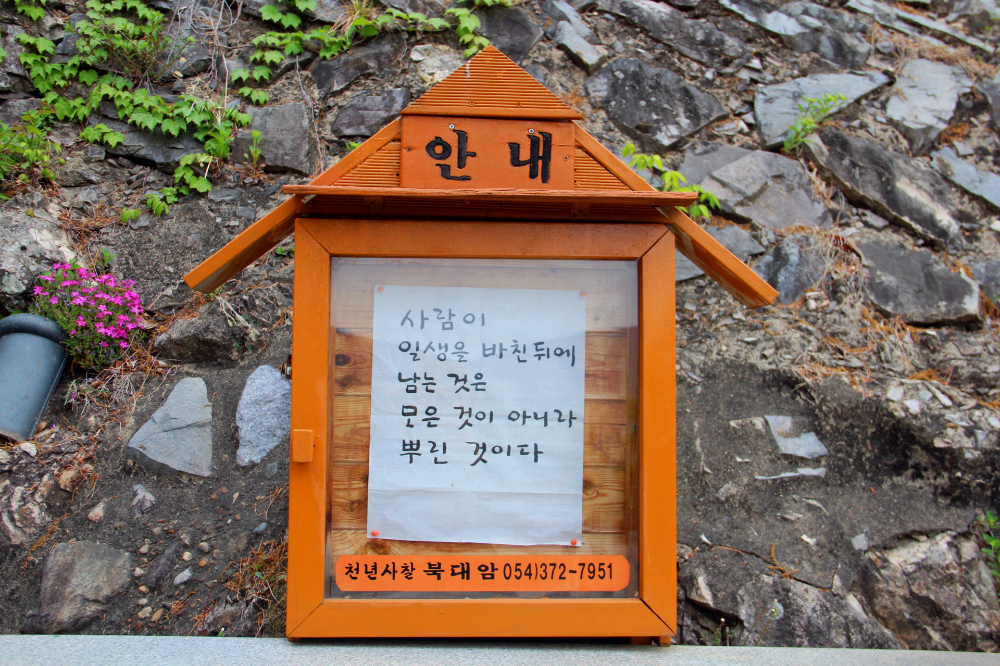 안내
사람이
일생을 바친뒤에
남는 것은
모은 것이 아니라
뿌린 것이다
천년사찰 북대암 054)372-7951